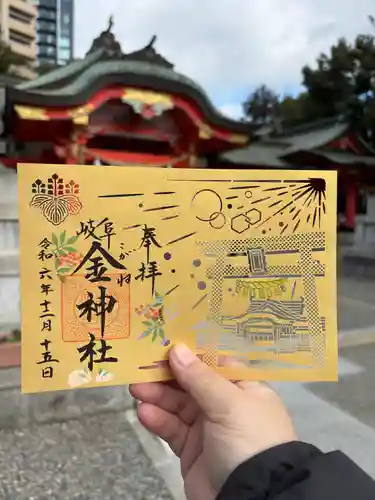 奉拝
岐阜
こがね
金神社
令和六年十一月十五日